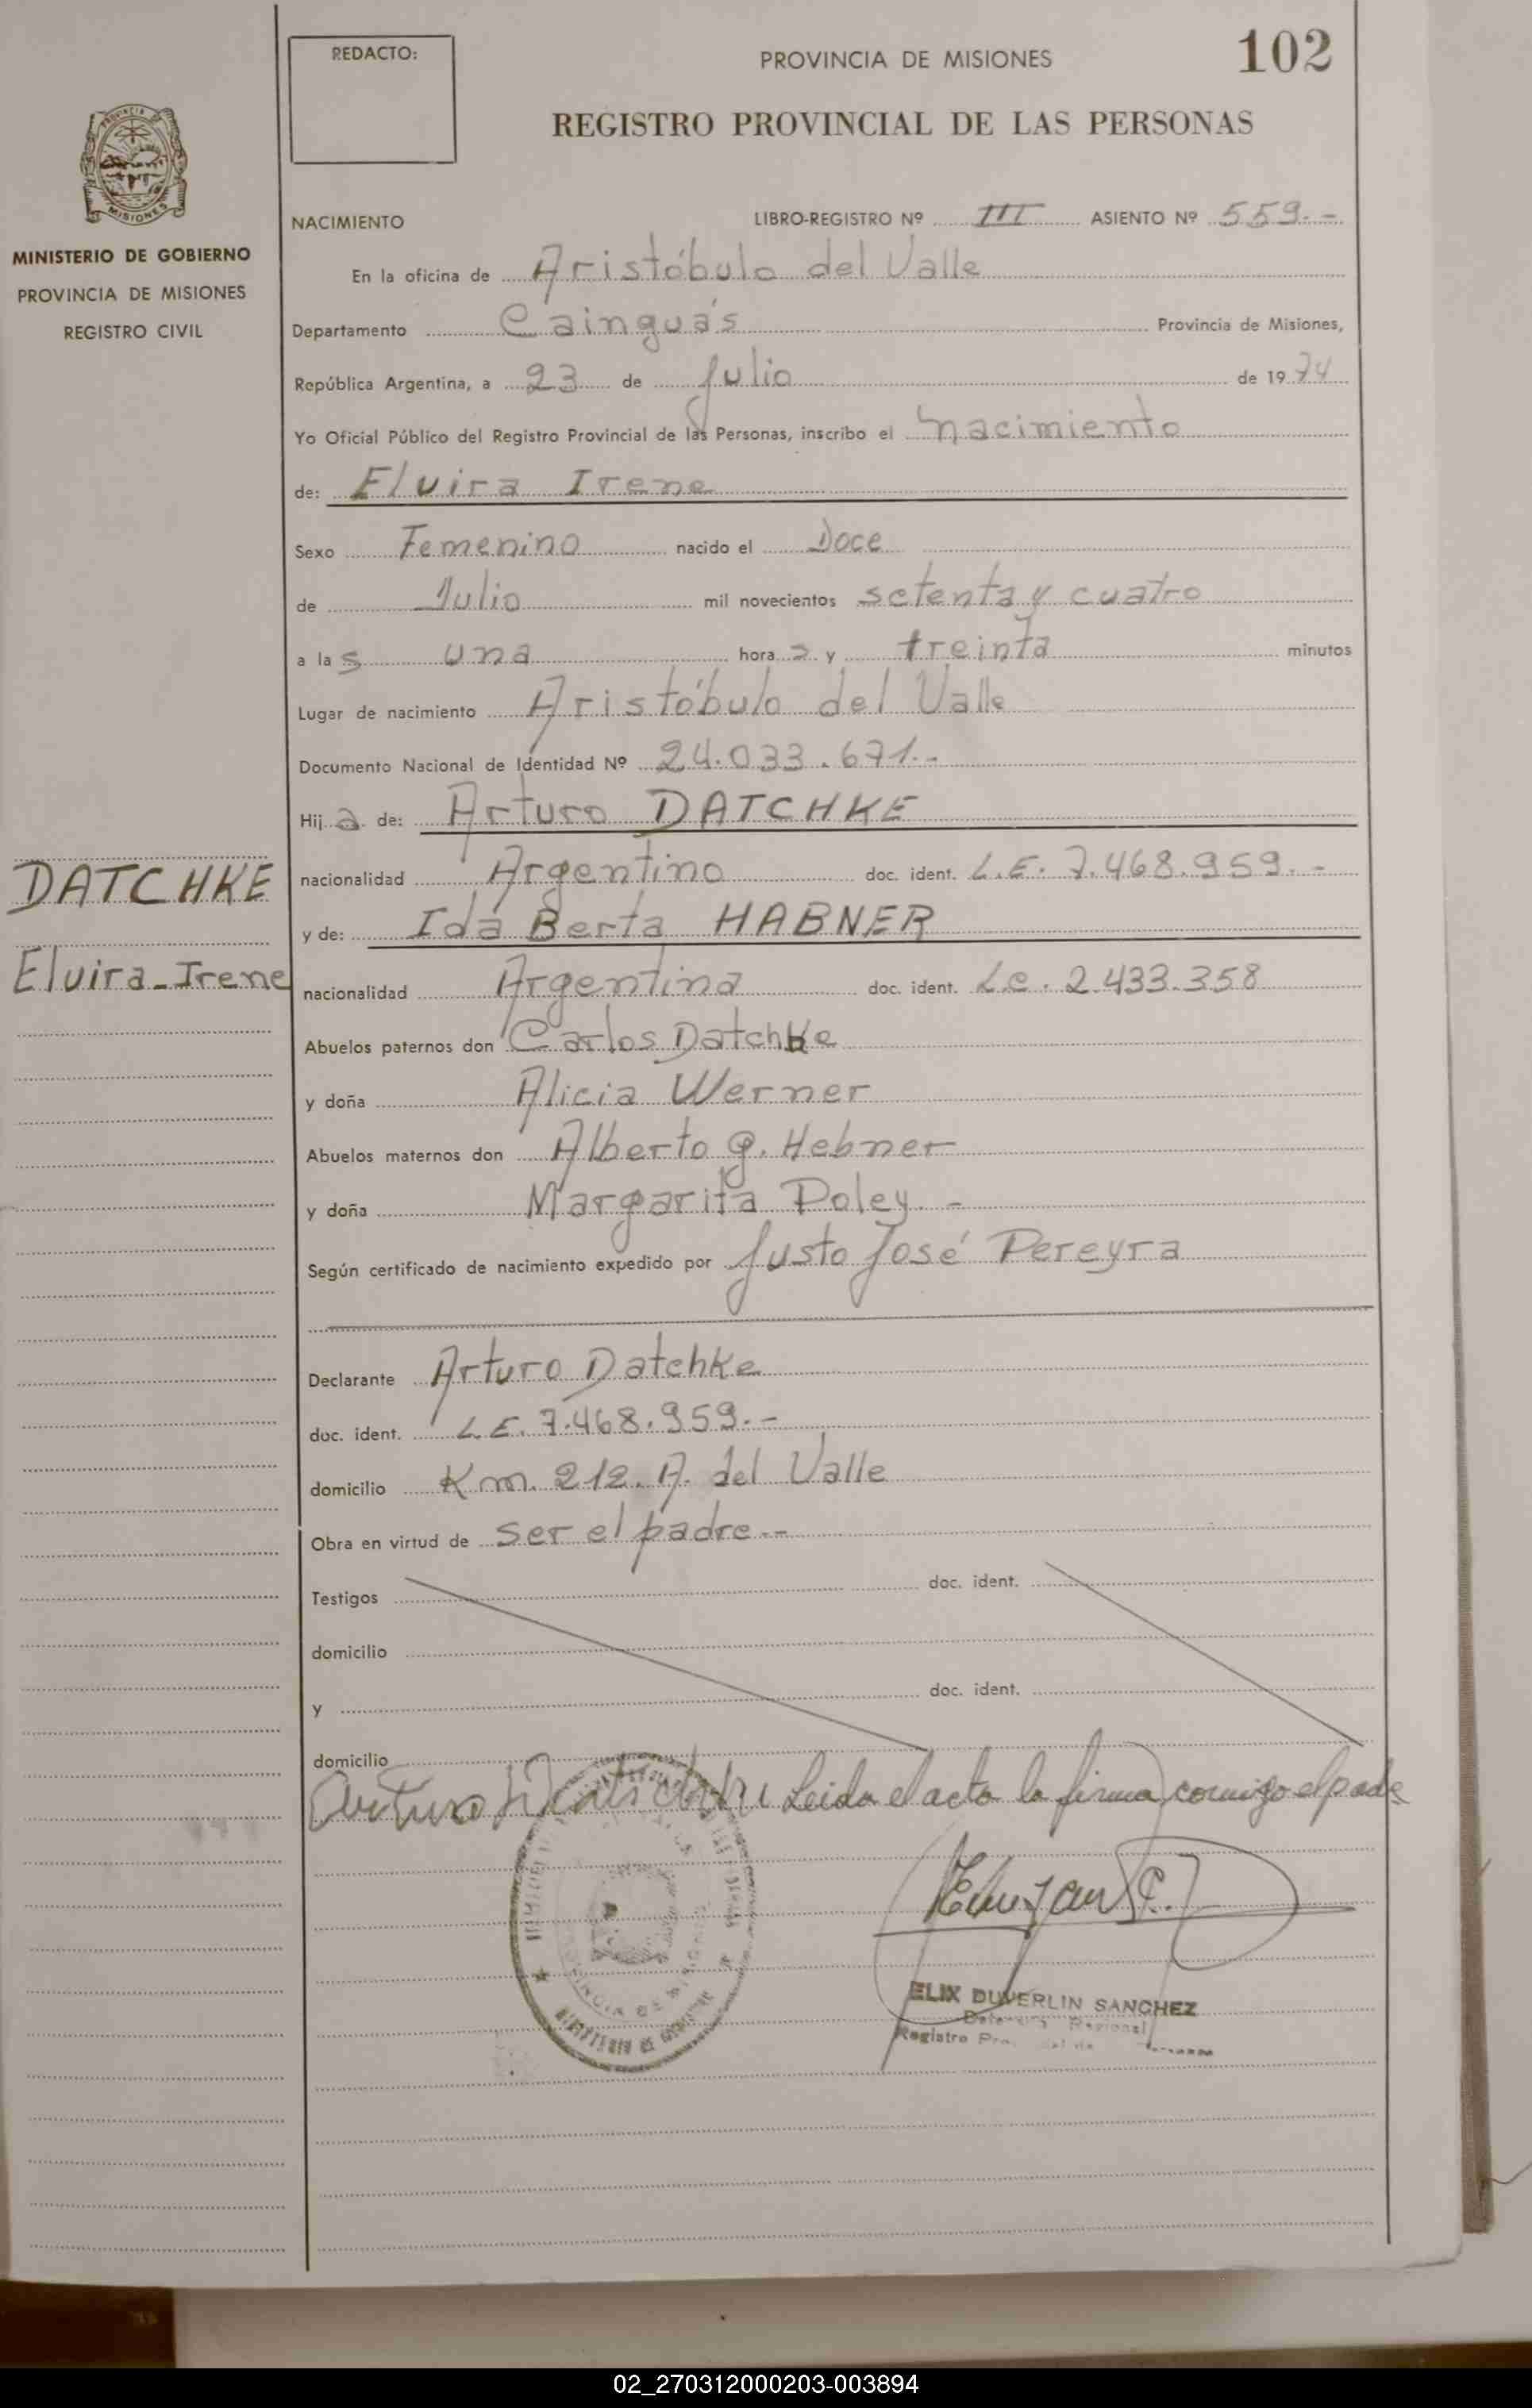 REDACTO:
PROVINCIA DE MISIONES
102
REGISTRO PROVINCIAL DE LAS PERSONAS
PROVINCIA DE
MISIONES
MINISTERIO DE GOBIERNO
PROVINCIA DE MISIONES
REGISTRO CIVIL
NACIMIENTO LIBRO-REGISTRO Nº III ASIENTO Nº 559.-
En la oficina de Aristóbulo del Valle
Departamento Cainguás Provincia de Misiones,
República Argentina, a 23 de Julio de 1974
Yo Oficial Público del Registro Provincial de las Personas, inscribo el nacimiento
de: Elvira Irene
Sexo Femenino nacido el Doce
de Julio mil novecientos setenta y cuatro
a las una hora s y treinta minutos
Lugar de nacimiento Aristóbulo del Valle
Documento Nacional de Identidad Nº 24.033.671.-
Hij a de: Arturo DATCHKE
nacionalidad Argentino doc. ident. L.E. 7.468.959.-
y de: Ida Berta HABNER
nacionalidad Argentina doc. ident. L.C. 2.433.358
DATCHKE
Elvira-Irene
Abuelos paternos don Carlos Datchke
y doña Alicia Werner
Abuelos maternos don Alberto G. Hebner
y doña Margarita Poley.-
Según certificado de nacimiento expedido por Justo José Pereyra
Declarante Arturo Datchke
doc. ident. L.E. 7.468.959.-
domicilio Km. 212. A. del Valle
Obra en virtud de ser el padre.-
Testigos doc. ident.
domicilio
y doc. ident.
domicilio
Arturo Leida el acta la firma comigo el padre
ELIX DUVERLIN SANCHEZ
Regional
Registro
02_270312000203-003894